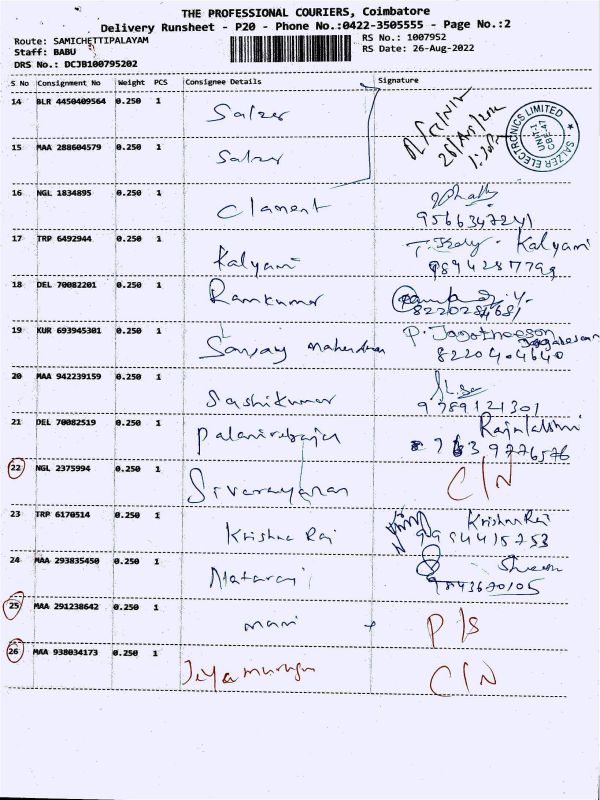 THE PROFESSIONAL COURIERS, Coimbatore
Delivery Runsheet - P20 - Phone No.:0422-3505555 - Page No.:2
Route: SAMICHETTIPALAYAM
Staff: BABU
DRS No.: DCJB100795202
RS No.: 1007952
RS Date: 26-Aug-2022
S No Consignment No Weight PCS Consignee Details Signature
14 BLR 4450409564 0.250 1 Salzer
SALZER ELECTRONICS LIMITED
UNIT-1
CBE-47
15 MAA 288604579 0.250 1 Salzer
16 NGL 1834895 0.250 1 Clament
9566347241
17 TRP 6492944 0.250 1 Kalyani Kalyani
9894287799
18 DEL 70082201 0.250 1 Ramkumar
8220284681
19 KUR 693945301 0.250 1 Sanjay Mahendran
8220404640
20 MAA 942239159 0.250 1 Sashikumar
9789121301
21 DEL 70082519 0.250 1 Rajalakshmi
9776576
22 NGL 2375994 0.250 1 C/N
23 TRP 6170514 0.250 1 Krishna Raj Krishna Raj
9994415753
24 MAA 293835450 0.250 1 Nataraj
9843620105
25 MAA 291238642 0.250 1 mani P/S
26 MAA 938034173 0.250 1 Jeyamurugan C/N